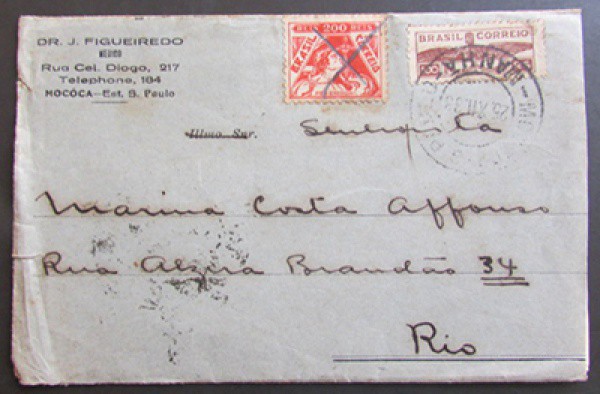 DR. J. FIGUEIREDO
Rua Cel. Diogo, 217
Telephone, 164
MOCÓCA—Est. S. Paulo
REIS 200 REIS
BRASIL CORREIO
BRASIL CORREIO
MANHÃ
Illmo Snr. Senhorita
Marina Costa Affonso
Rua Alzira Brandão 34
Rio